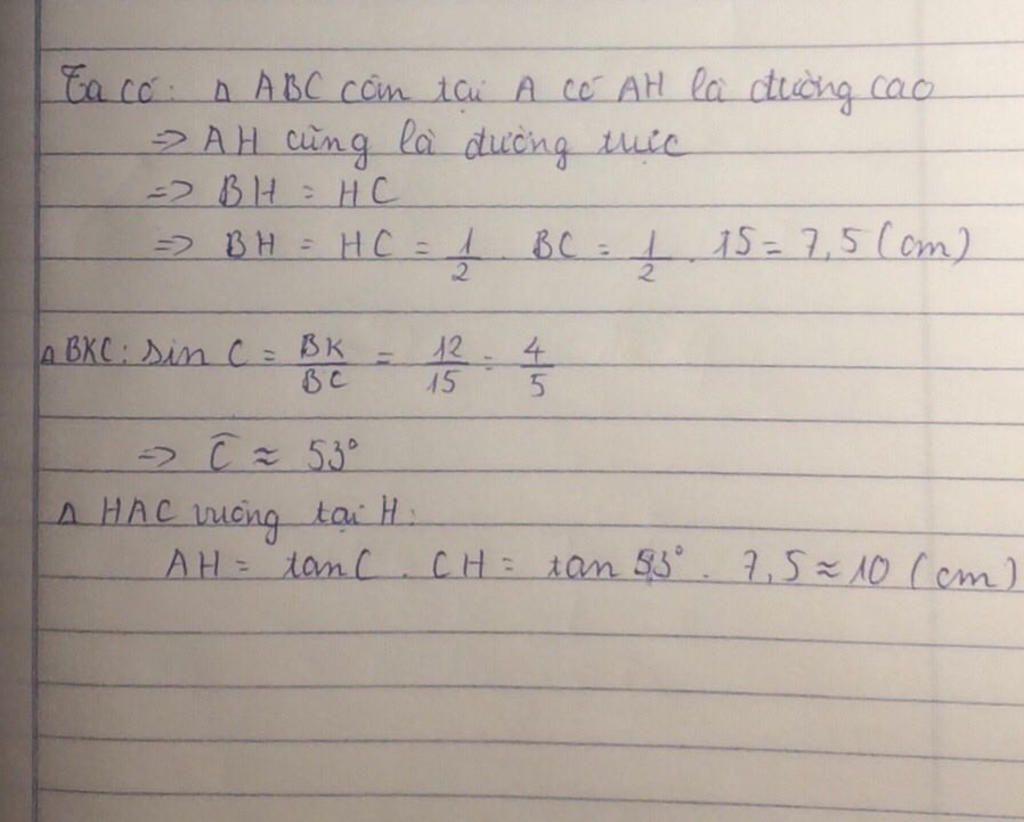 Ta có: Δ ABC cân tại A có AH là đường cao
=> AH cũng là đường trực
=> BH = HC
=> BH = HC = 1/2 . BC = 1/2 . 15 = 7,5 (cm)
Δ BKC: sin C = BK/BC = 12/15 = 4/5
=> Ĉ ≈ 53°
Δ HAC vuông tại H:
AH = tan C . CH = tan 53° . 7,5 ≈ 10 (cm)